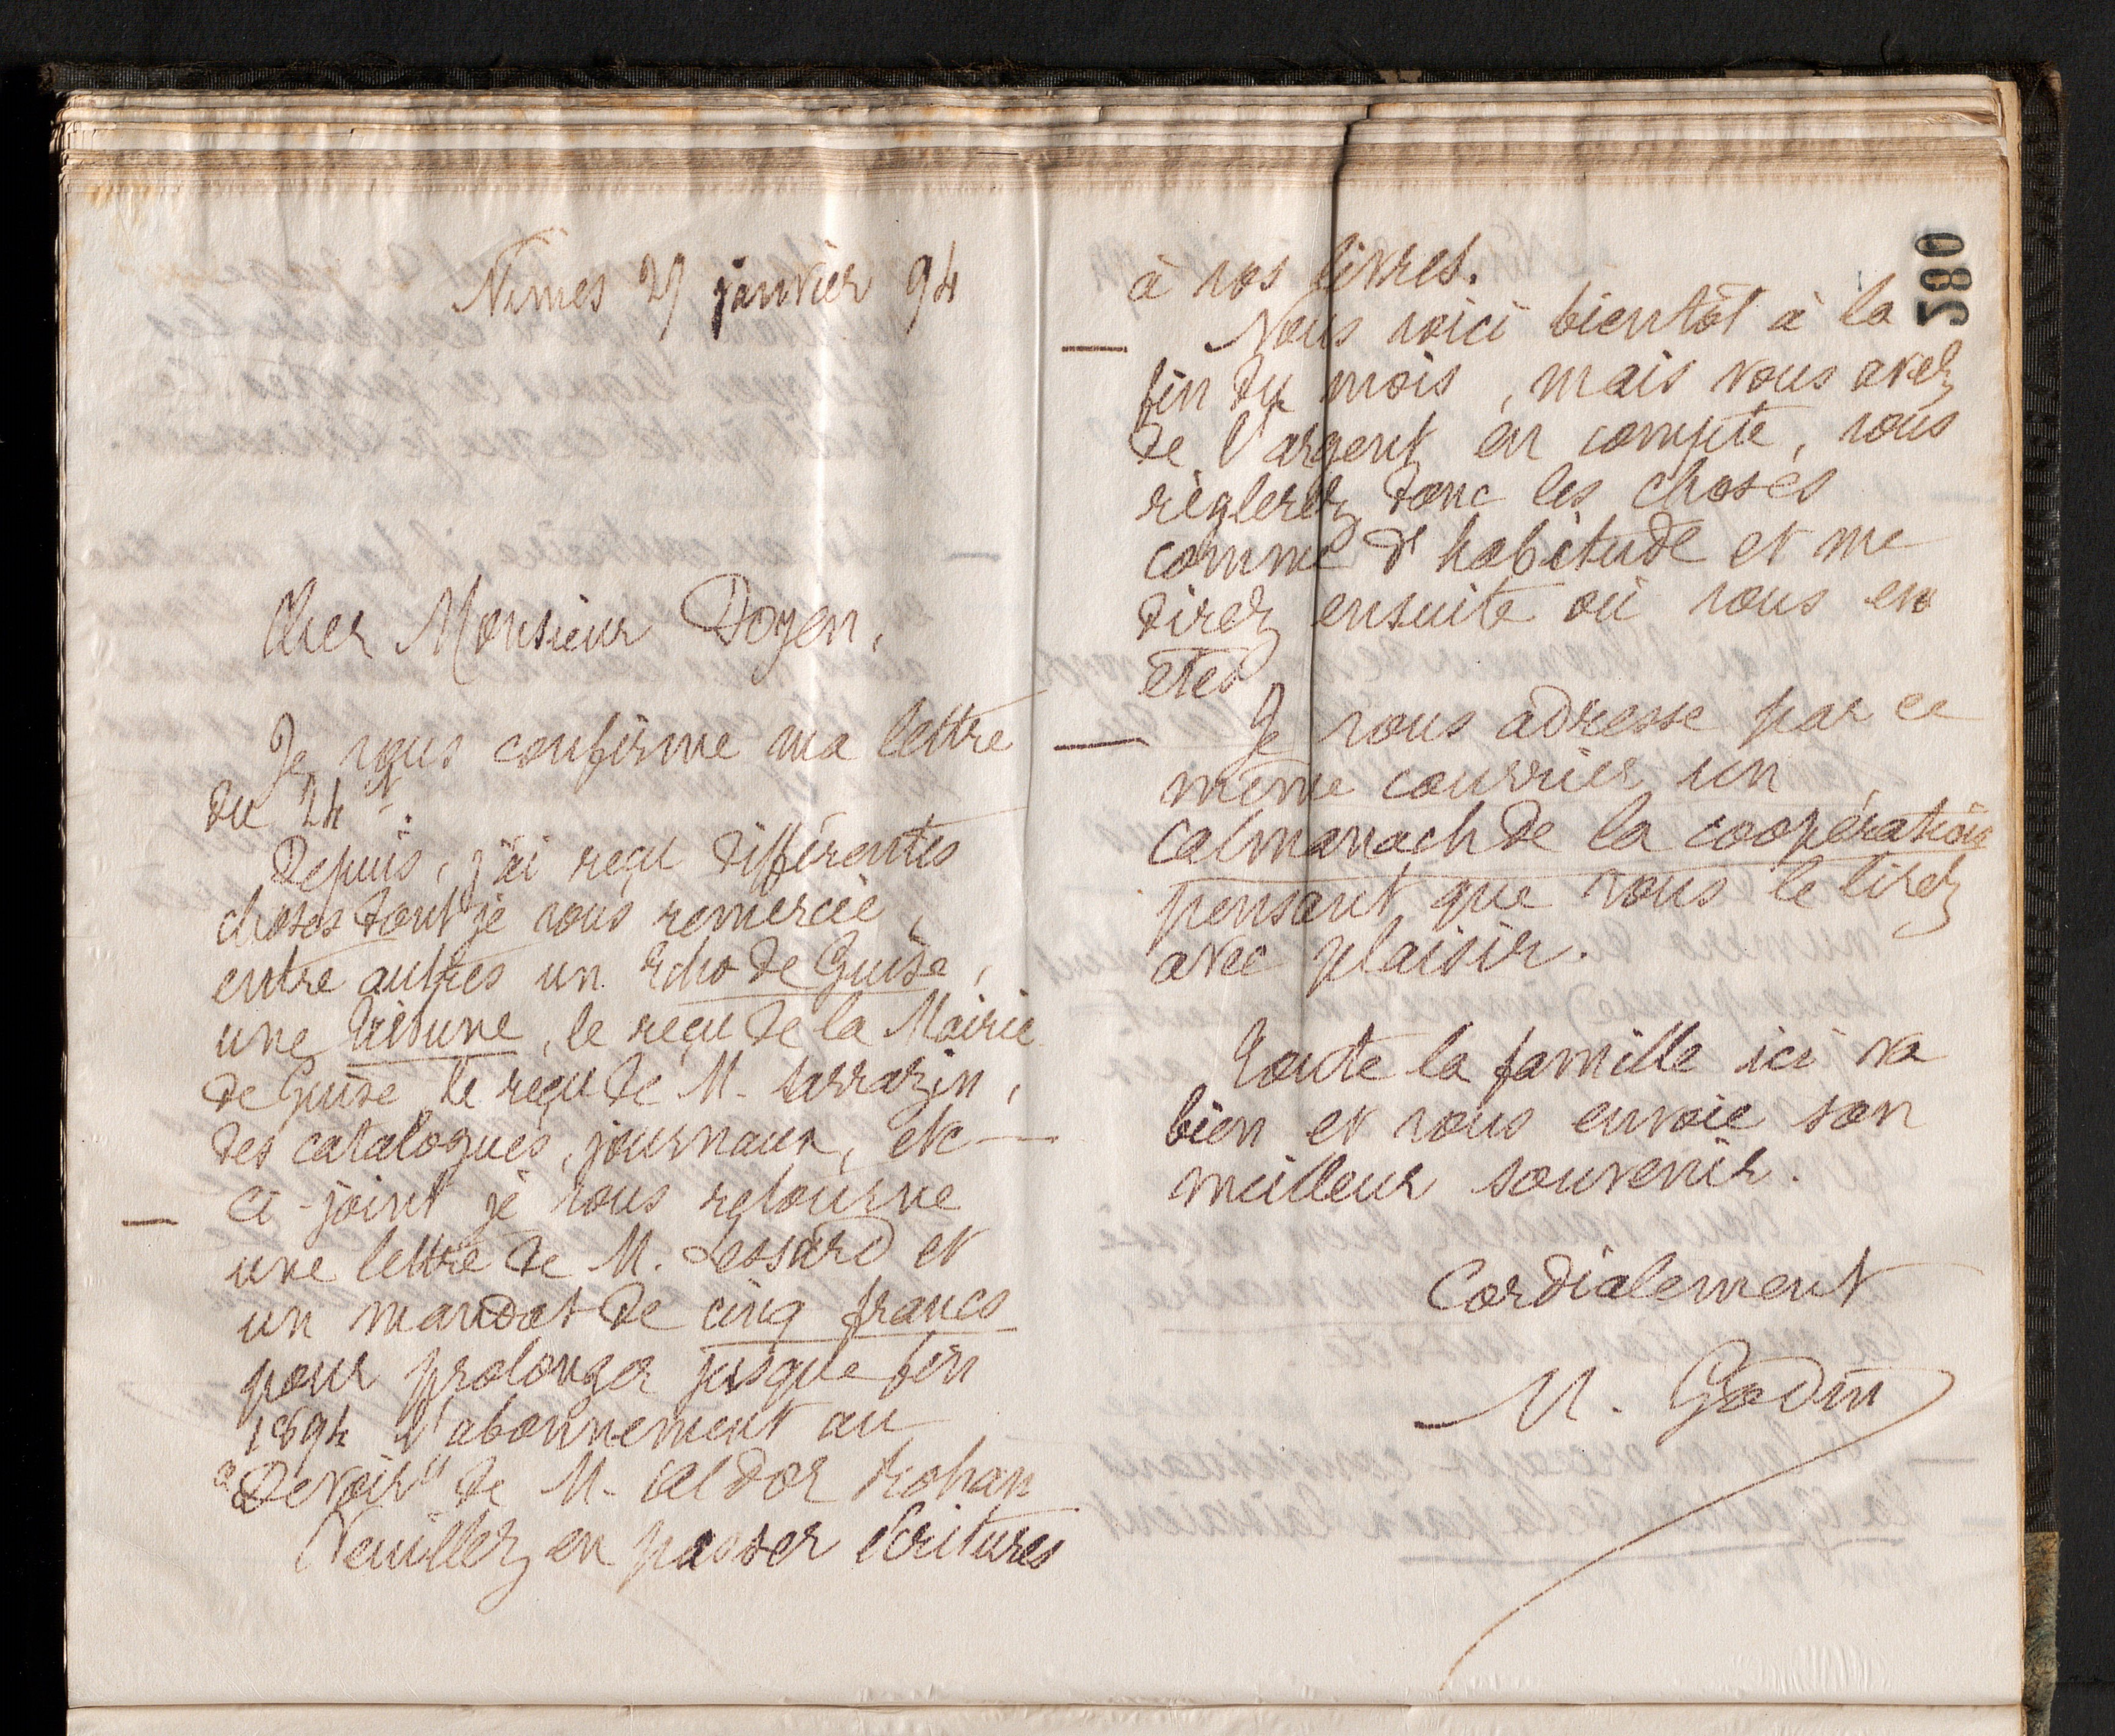 Nimes 27 janvier 94
Cher Monsieur Doyen,
Je vous confirme ma lettre
du 24 ct.
Depuis, j'ai reçu différentes
choses dont je vous remercie,
entre autres un Echo de Guise,
une Tribune, le reçu de la Mairie
de Guise le reçu de M. Sarrazin,
des catalogues, journaux, etc
— Ci-joint je vous retourne
une lettre de M. Lessard et
un mandat de cinq francs
pour prolonger jusque fin
1894 l'abonnement au
"Devoir" de M. Aldor Kohan
Veuillez en passer écritures
580
à vos livres.
— Nous voici bientôt à la
fin du mois, mais vous avez
de l'argent en compte, vous
règlerez donc les choses
comme d'habitude et me
direz ensuite où vous en
etes
— Je vous adresse par ce
même courrier un
almanach de la coopération
pensant que vous le lirez
avec plaisir.
Toute la famille ici va
bien et vous envoie son
meilleur souvenir.
Cordialement
M. Godin